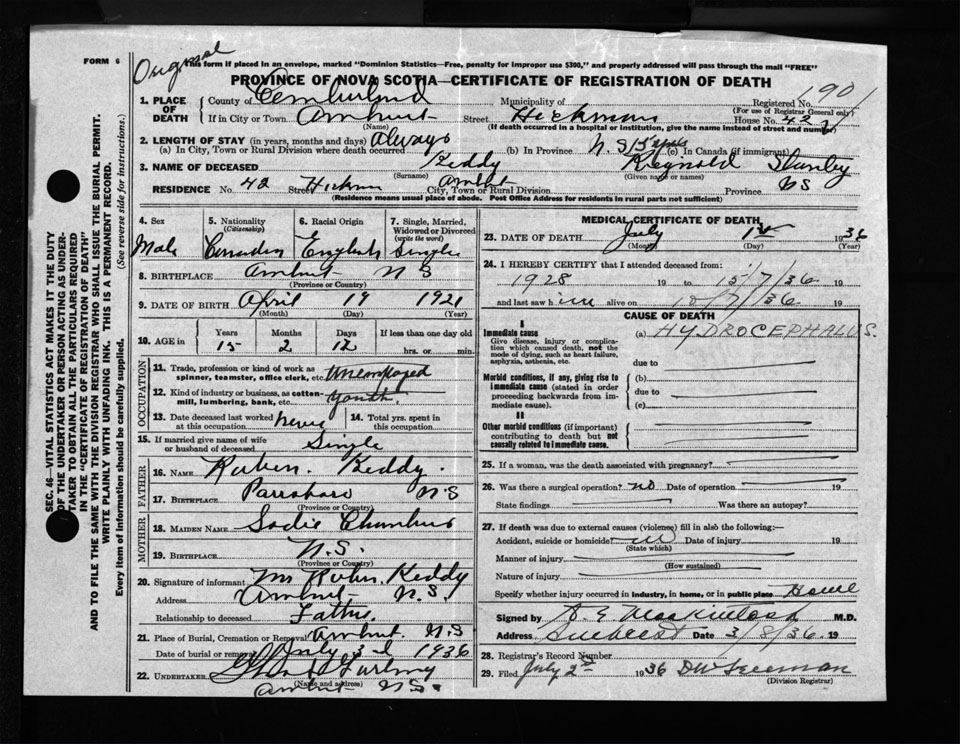 FORM 6
Original
This form if placed in an envelope, marked "Dominion Statistics—Free, penalty for improper use $300," and properly addressed will pass through the mail "FREE"
PROVINCE OF NOVA SCOTIA—CERTIFICATE OF REGISTRATION OF DEATH
1901
1. PLACE OF DEATH County of Cumberland Municipality of Registered No.
(For use of Registrar General only)
If in City or Town Amherst Street Hickman House No. 42
(Name) (If death occurred in a hospital or institution, give the name instead of street and number)
2. LENGTH OF STAY (in years, months and days)
(a) In City, Town or Rural Division where death occurred Always (b) In Province N.S. 15 yrs (c) In Canada (if immigrant)
3. NAME OF DECEASED Keddy Reginald Stanley
(Surname) (Given name or names)
RESIDENCE No. 42 Street Hickman City, Town or Rural Division Amherst Province NS
(Residence means usual place of abode. Post Office Address for residents in rural parts not sufficient)
4. Sex 5. Nationality (Citizenship) 6. Racial Origin 7. Single, Married, Widowed or Divorced (write the word)
Male Canadian English Single
8. BIRTHPLACE Amherst N S
(Province or Country)
9. DATE OF BIRTH April 19 1921
(Month) (Day) (Year)
10. AGE in Years Months Days If less than one day old
15 2 12 hrs. or min.
OCCUPATION
11. Trade, profession or kind of work as spinner, teamster, office clerk, etc. Unemployed
12. Kind of industry or business, as cotton-mill, lumbering, bank, etc. Youth
13. Date deceased last worked at this occupation never 14. Total yrs. spent in this occupation
15. If married give name of wife or husband of deceased Single
FATHER
16. NAME Ruben Keddy
17. BIRTHPLACE Parrsboro N S
(Province or Country)
MOTHER
18. MAIDEN NAME Sadie
19. BIRTHPLACE N.S.
(Province or Country)
20. Signature of informant Mr Ruben Keddy
Address Amherst N.S.
Relationship to deceased Father
21. Place of Burial, Cremation or Removal Amherst N.S
Date of burial or removal July 3rd 1936
22. UNDERTAKER
(Name and address)
Amherst N.S.
MEDICAL CERTIFICATE OF DEATH
23. DATE OF DEATH July 1st 1936
(Month) (Day) (Year)
24. I HEREBY CERTIFY that I attended deceased from:
1928 19 to 15/7/36 19
and last saw him alive on 10/7/36 19
CAUSE OF DEATH
I
Immediate cause (a) HYDROCEPHALUS.
Give disease, injury or complication which caused death, not the mode of dying, such as heart failure, asphyxia, asthenia, etc.
due to
Morbid conditions, if any, giving rise to immediate cause (stated in order proceeding backwards from immediate cause).
(b)
due to
(c)
II
Other morbid conditions (if important) contributing to death but not causally related to immediate cause.
25. If a woman, was the death associated with pregnancy?
26. Was there a surgical operation? no Date of operation 19
State findings Was there an autopsy?
27. If death was due to external causes (violence) fill in also the following:—
Accident, suicide or homicide? Date of injury 19
(State which)
Manner of injury
(How sustained)
Nature of injury
Specify whether injury occurred in industry, in home, or in public place Home
Signed by M.D.
Address Amherst Date 3/8/36 19
28. Registrar's Record Number
29. Filed July 2nd 1936
(Division Registrar)
SEC. 46—VITAL STATISTICS ACT MAKES IT THE DUTY
OF THE UNDERTAKER OR PERSON ACTING AS UNDER-
TAKER TO OBTAIN ALL THE PARTICULARS REQUIRED
IN THE "CERTIFICATE OF REGISTRATION OF DEATH"
AND TO FILE THE SAME WITH THE DIVISION REGISTRAR WHO SHALL ISSUE THE BURIAL PERMIT.
WRITE PLAINLY WITH UNFADING INK. THIS IS A PERMANENT RECORD.
Every item of information should be carefully supplied. (See reverse side for instructions.)